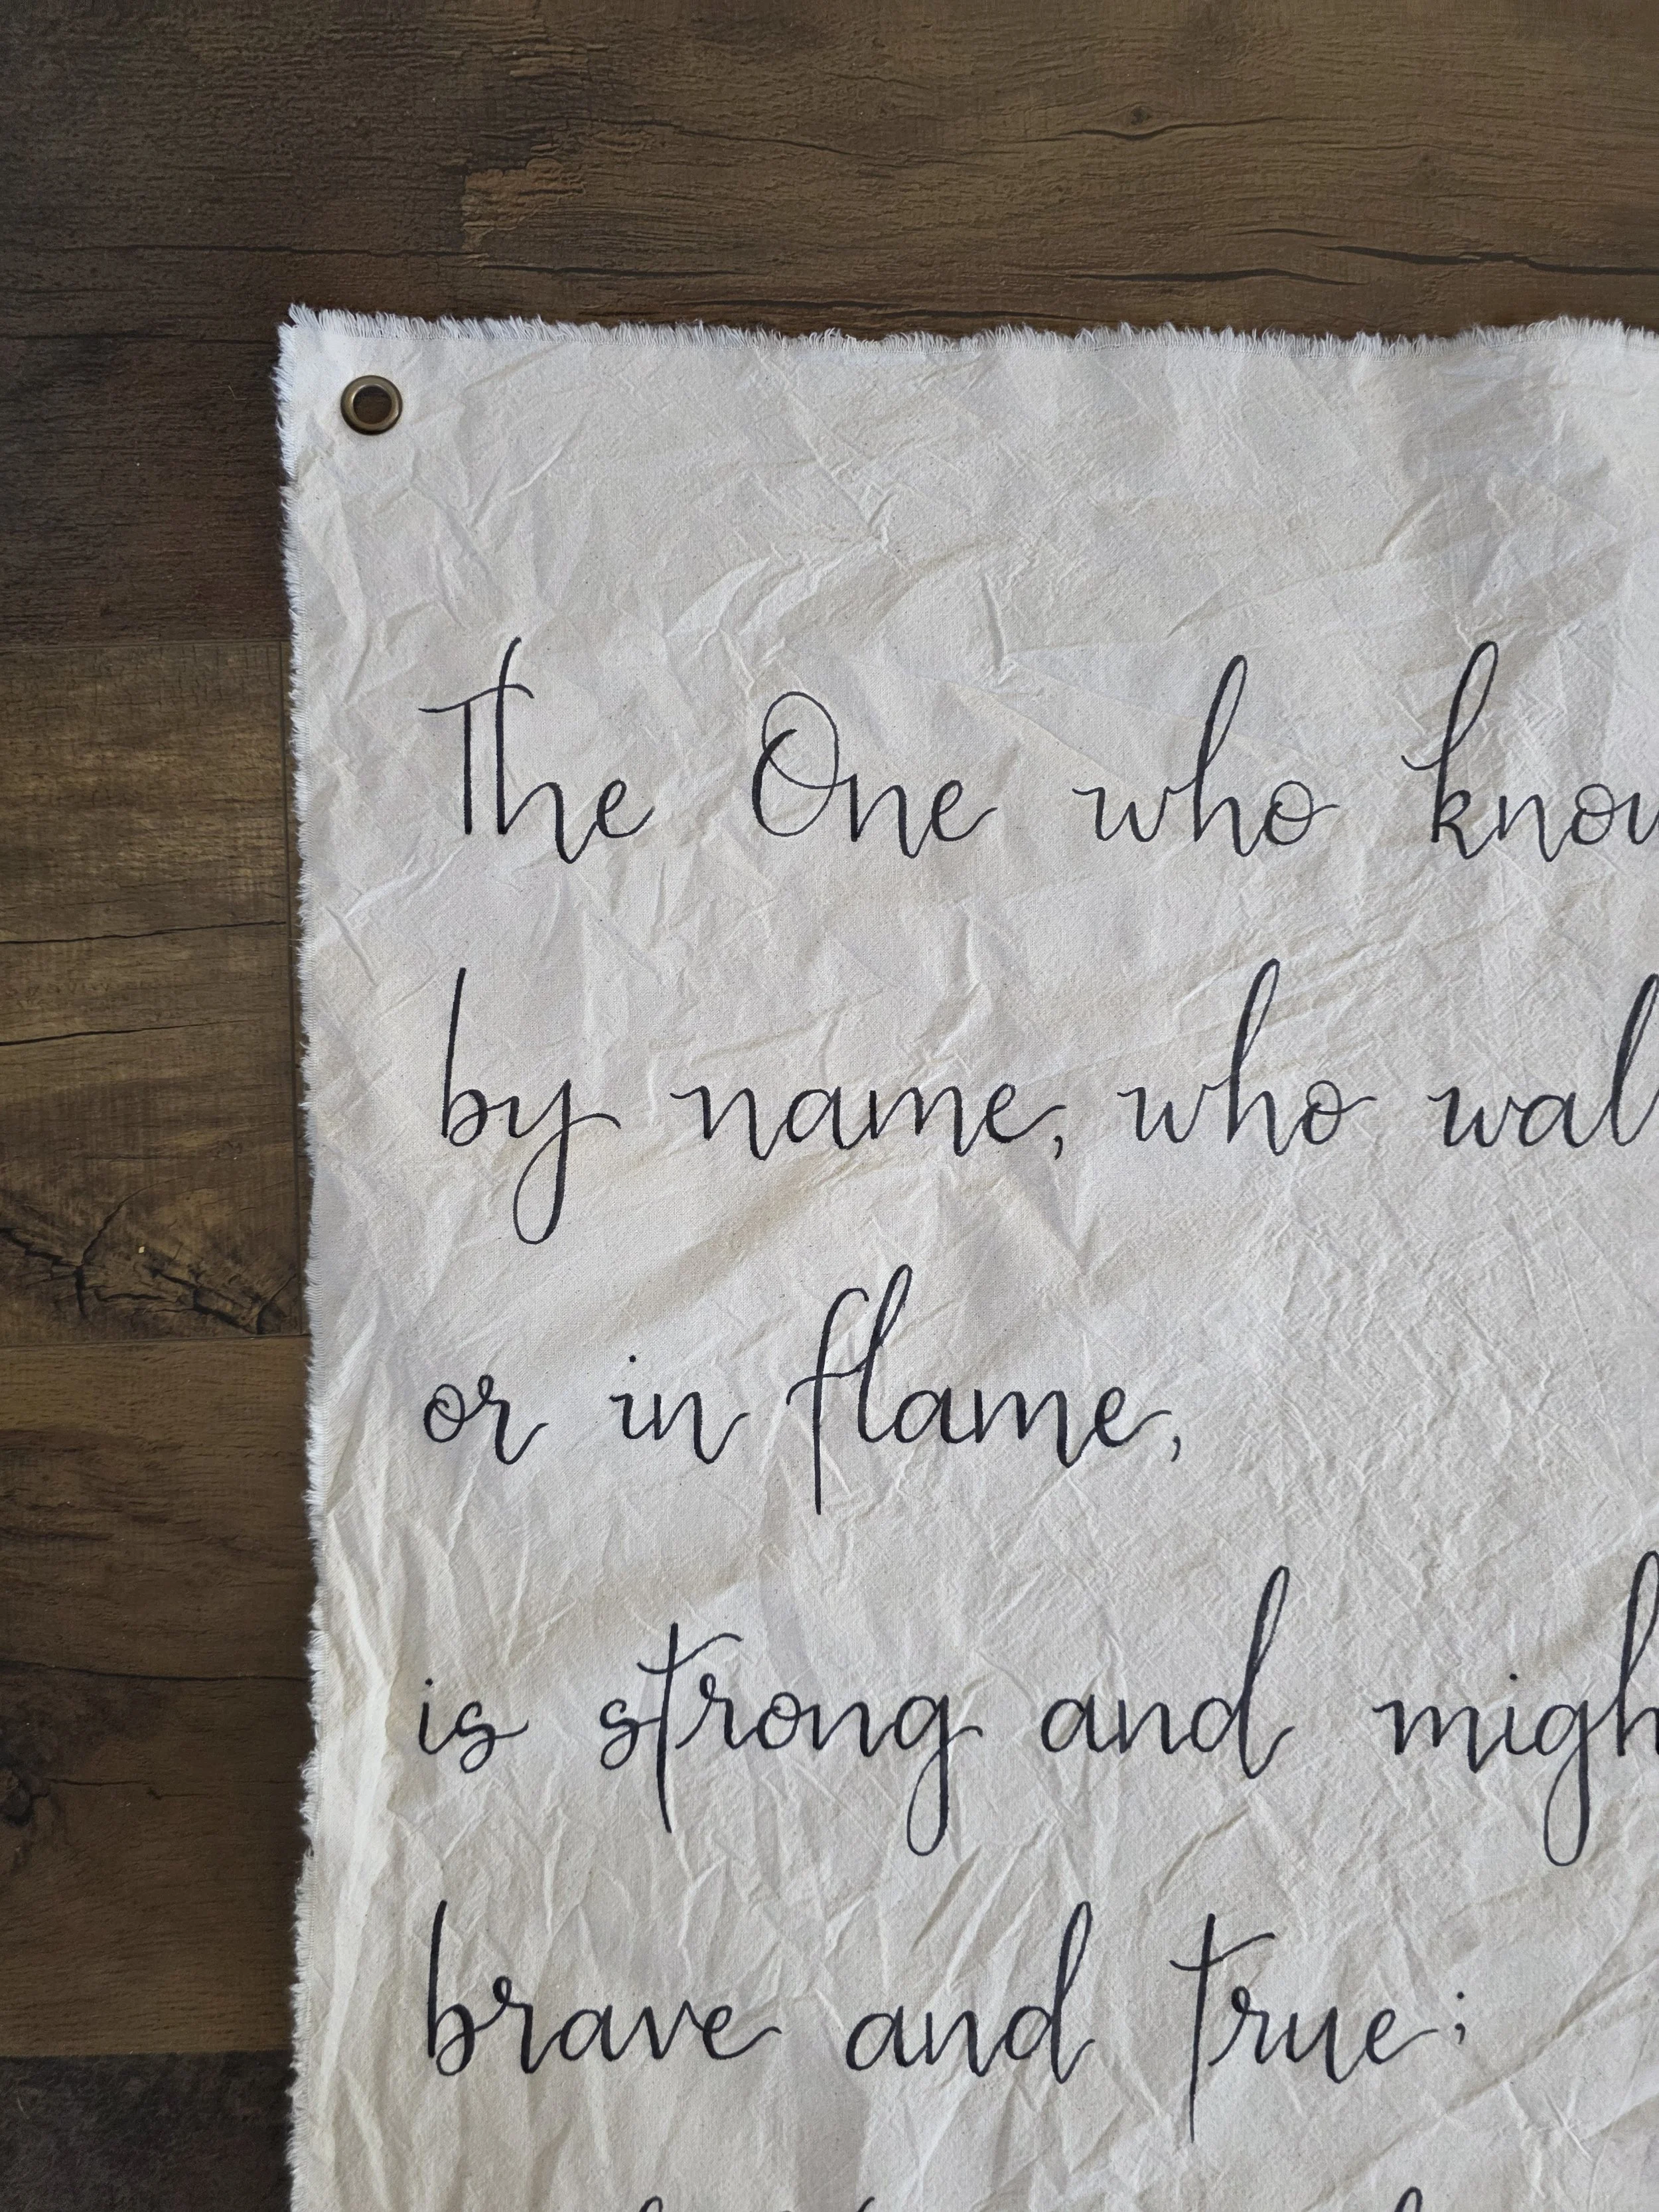 The One who know
by name, who wal
or in flame,
is strong and migh
brave and true;